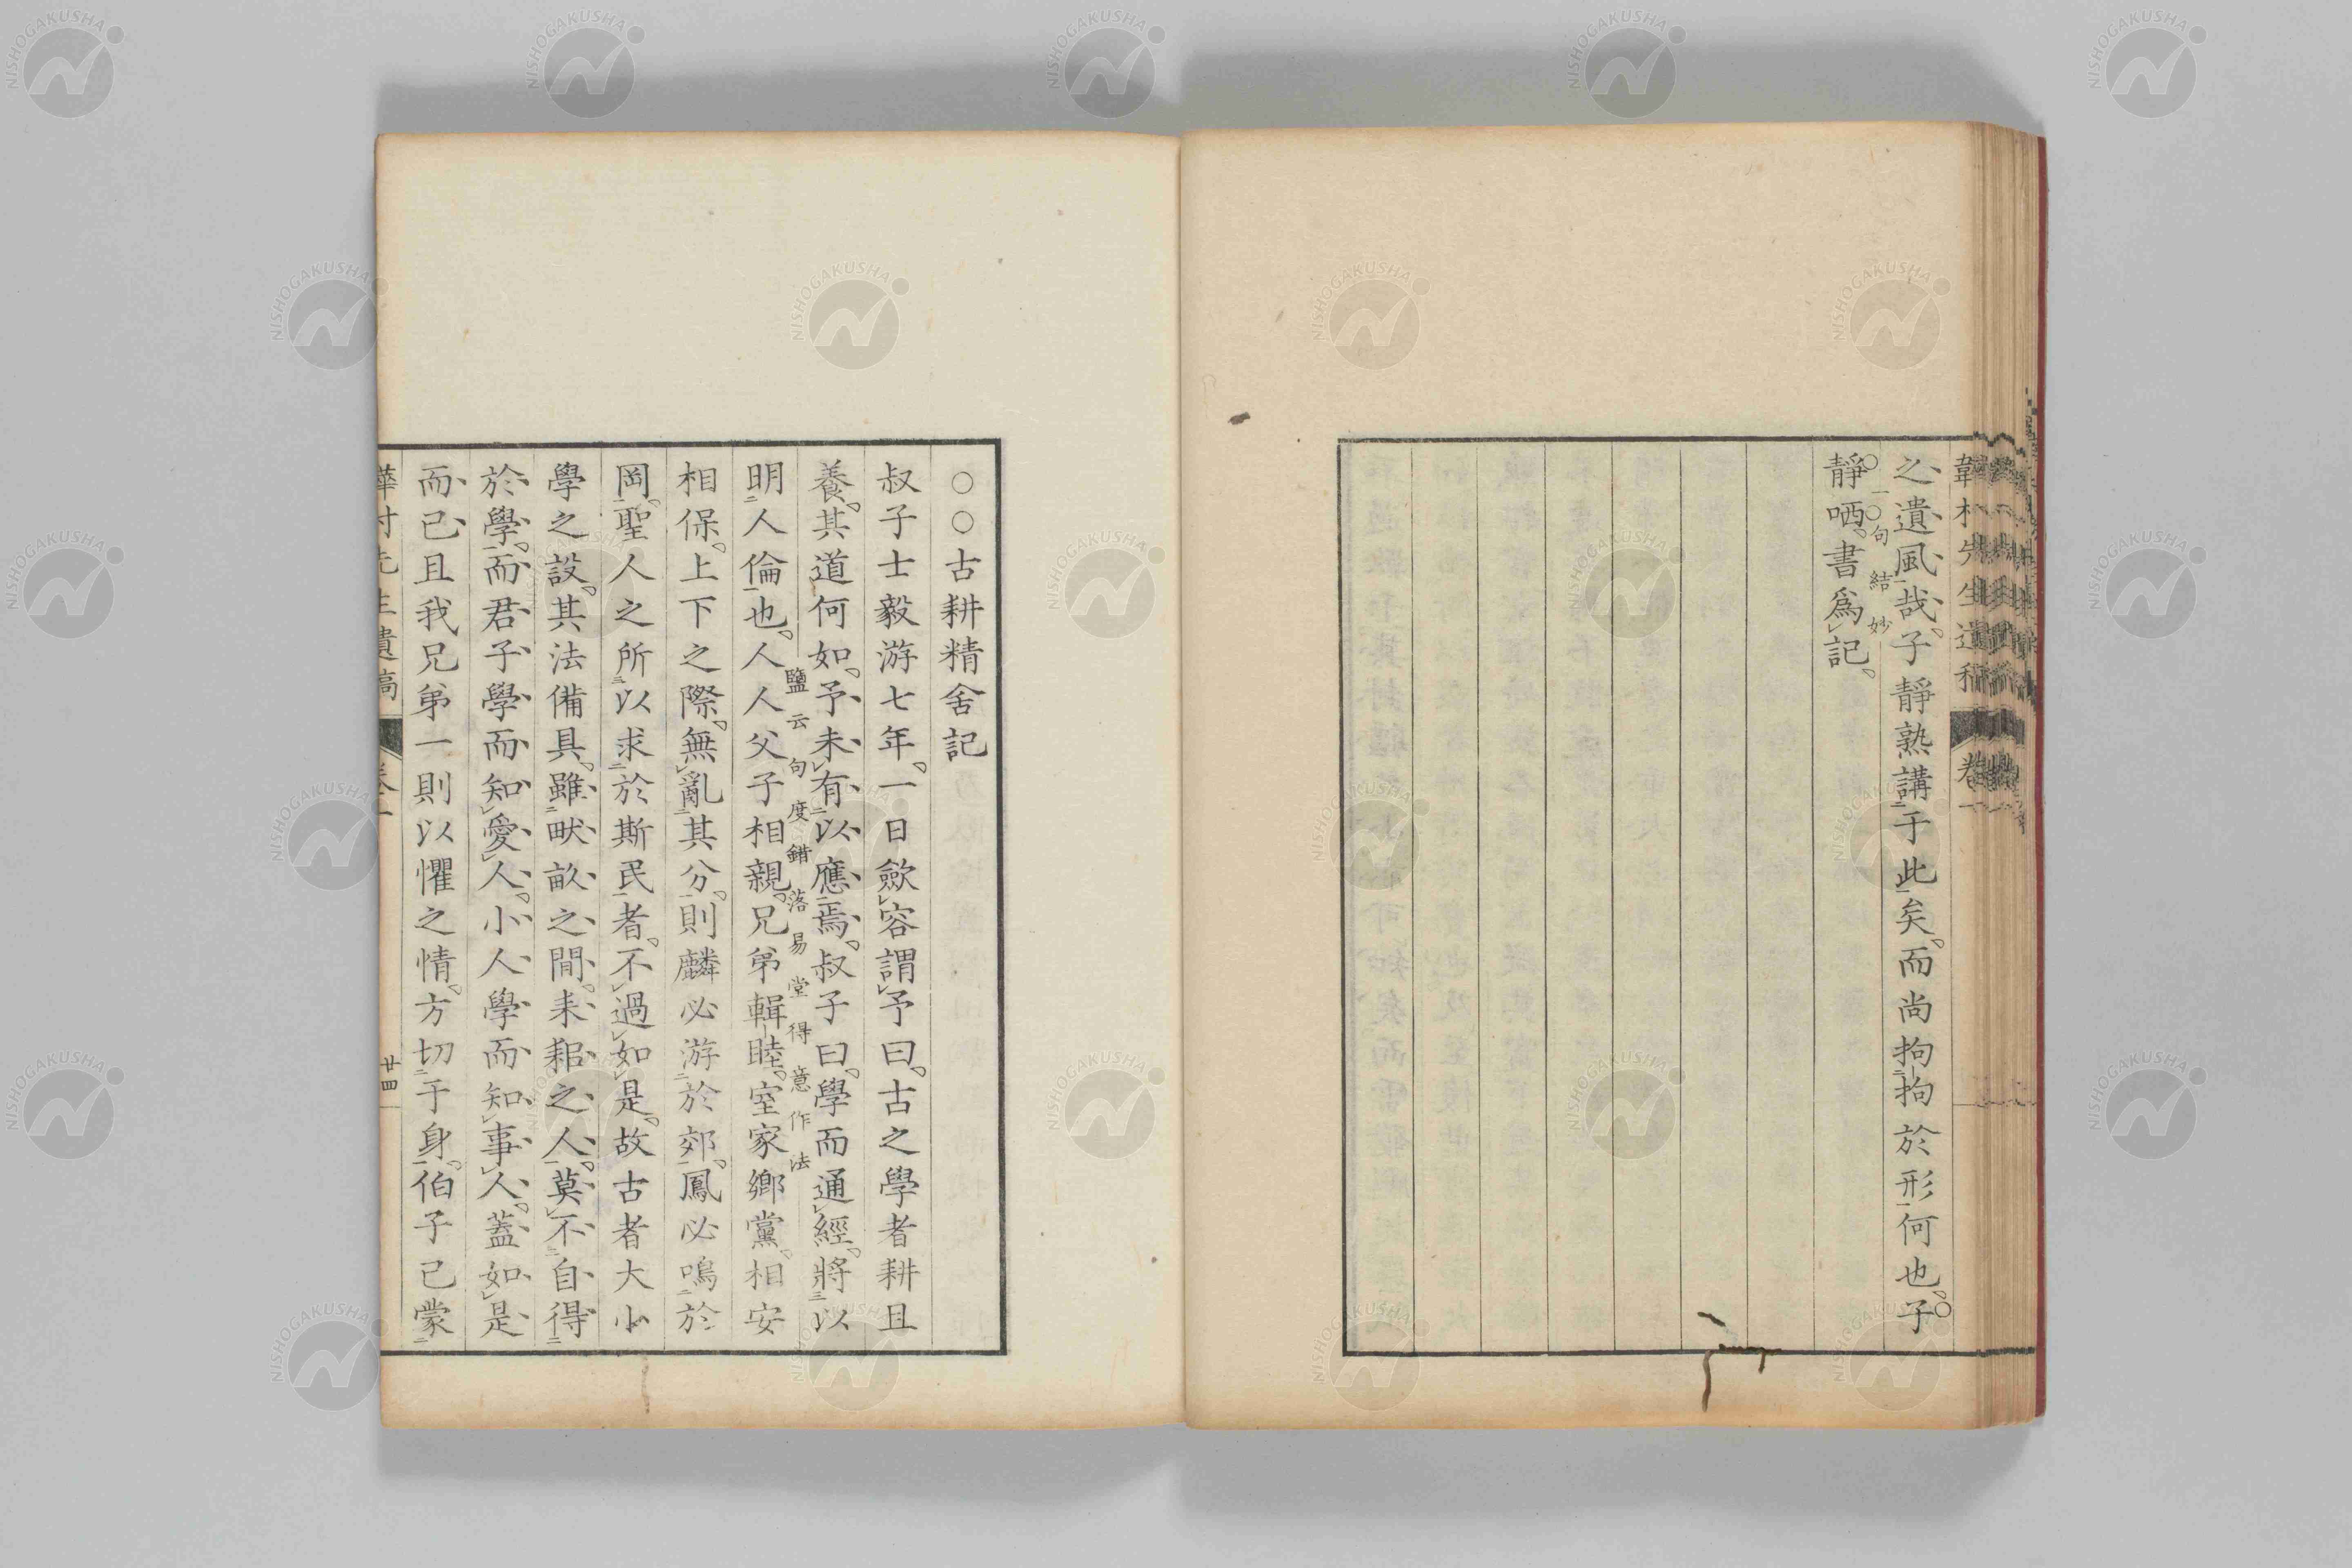 韡村先生遺稿 卷一
之遺風哉。子靜熟講于此矣。而尚拘拘於形何也。子
一句結妙
靜哂。書爲記。
○○古耕精舍記
叔子士毅游七年。一日歛容謂予曰。古之學者耕且
養。其道何如。予未有以應焉。叔子曰。學而通經。將以
鹽云句度錯落易堂得意作法
明人倫也。人人父子相親。兄弟輯睦。室家鄉黨。相安
相保。上下之際。無亂其分。則麟必游於郊。鳳必鳴於
岡。聖人之所以求於斯民者。不過如是。故古者大小
學之設。其法備具。雖畎畝之間。耒耜之人。莫不自得
於學。而君子學而知愛人。小人學而知事人。蓋如是
而已且我兄弟一則以懼之情。方切于身。伯子已蒙
韡村先生遺稿 卷一 廿四
NISHOGAKUSHA